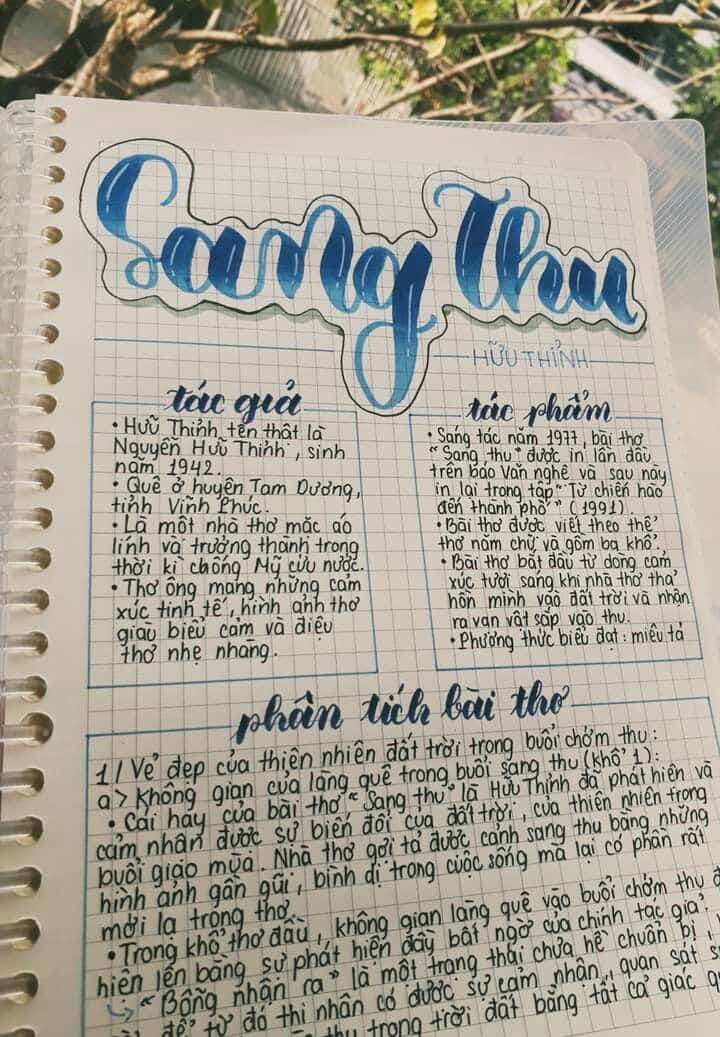 Sang Thu
HỮU THỈNH
tác giả
• Hữu Thỉnh, tên thật là
Nguyễn Hữu Thỉnh, sinh
năm 1942.
• Quê ở huyện Tam Dương,
tỉnh Vĩnh Phúc.
• Là một nhà thơ mặc áo
lính và trưởng thành trong
thời kì chống Mỹ cứu nước.
• Thơ ông mang những cảm
xúc tinh tế, hình ảnh thơ
giàu biểu cảm và điệu
thơ nhẹ nhàng.
tác phẩm
• Sáng tác năm 1977, bài thơ
“Sang thu” được in lần đầu
trên báo Văn nghệ và sau này
in lại trong tập “Từ chiến hào
đến thành phố” (1991).
• Bài thơ được viết theo thể
thơ năm chữ và gồm ba khổ.
• Bài thơ bắt đầu từ dòng cảm
xúc tươi sáng khi nhà thơ thả
hồn mình vào đất trời và nhận
ra vạn vật sắp vào thu.
• Phương thức biểu đạt: miêu tả
phân tích bài thơ
1/ Vẻ đẹp của thiên nhiên đất trời trong buổi chớm thu:
a> Không gian của làng quê trong buổi sang thu (khổ 1):
• Cái hay của bài thơ “Sang thu” là Hữu Thỉnh đã phát hiện và
cảm nhận được sự biến đổi của đất trời, của thiên nhiên trong
buổi giao mùa. Nhà thơ gợi tả được cảnh sang thu bằng những
hình ảnh gần gũi, bình dị trong cuộc sống mà lại có phần rất
mới lạ trong thơ.
• Trong khổ thơ đầu, không gian làng quê vào buổi chớm thu
hiện lên bằng sự phát hiện đầy bất ngờ của chính tác giả.
↳ “Bỗng nhận ra” là một trạng thái chưa hề chuẩn bị,
để từ đó thi nhân có được sự cảm nhận, quan sát
thu trong trời đất bằng tất cả giác